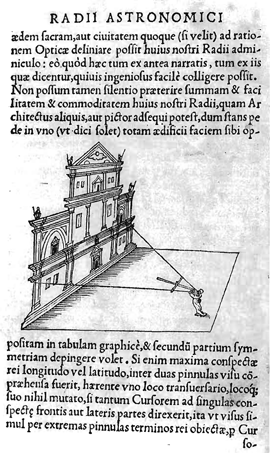 RADII ASTRONOMICI
ædem sacram, aut ciuitatem quoque (si velit) ad ratio-
nem Opticæ deliniare possit huius nostri Radii admi-
niculo: eo, quòd hæc tum ex antea narratis, tum ex iis
quæ dicentur, quiuis ingeniosus facilè colligere possit.
Non possum tamen silentio præterire summam & faci
litatem & commoditatem huius nostri Radii, quam Ar
chitectus aliquis, aut pictor adsequi potest, dum stans pe
de in vno (vt dici solet) totam ædificii faciem sibi op-
positam in tabulam graphicè, & secundũ partium sym-
metriam depingere volet. Si enim maxima conspectæ
rei longitudo vel latitudo, inter duas pinnulas visu cõ-
præhensa fuerit, hærente vno loco transuersario, locoq;
suo nihil mutato, si tantum Cursorem ad singulas con-
spectę frontis aut lateris partes direxerit, ita vt visus si-
mul per extremas pinnulas terminos rei obiectæ, ꝑ Cur
so-